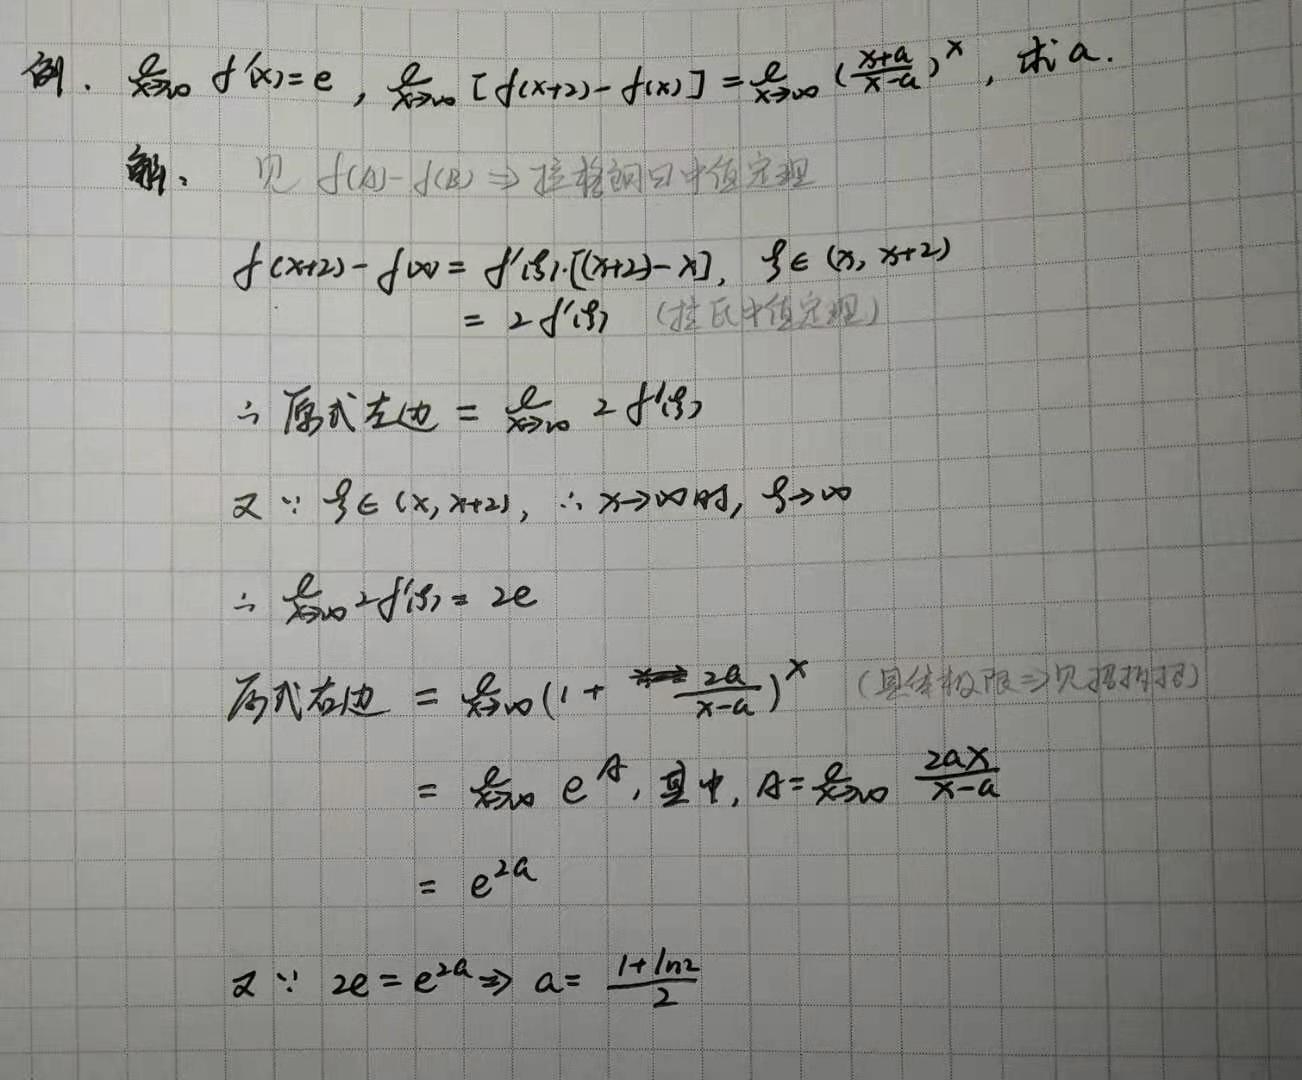 例. lim x→∞ f'(x)=e, lim x→∞ [f(x+2)-f(x)] = lim x→∞ (x+a/x-a)^x, 求a.
解. 见 f(A)-f(B) ⇒ 拉格朗日中值定理
f(x+2)-f(x) = f'(ξ)·[(x+2)-x], ξ∈(x, x+2)
= 2f'(ξ) (拉氏中值定理)
∴ 原式左边 = lim x→∞ 2f'(ξ)
又∵ ξ∈(x, x+2), ∴ x→∞时, ξ→∞
∴ lim x→∞ 2f'(ξ) = 2e
原式右边 = lim x→∞ (1+ 2a/x-a)^x (具体极限⇒见
= lim x→∞ e^A, 其中, A= lim x→∞ 2ax/x-a
= e^2a
又∵ 2e = e^2a ⇒ a= 1+ln2/2